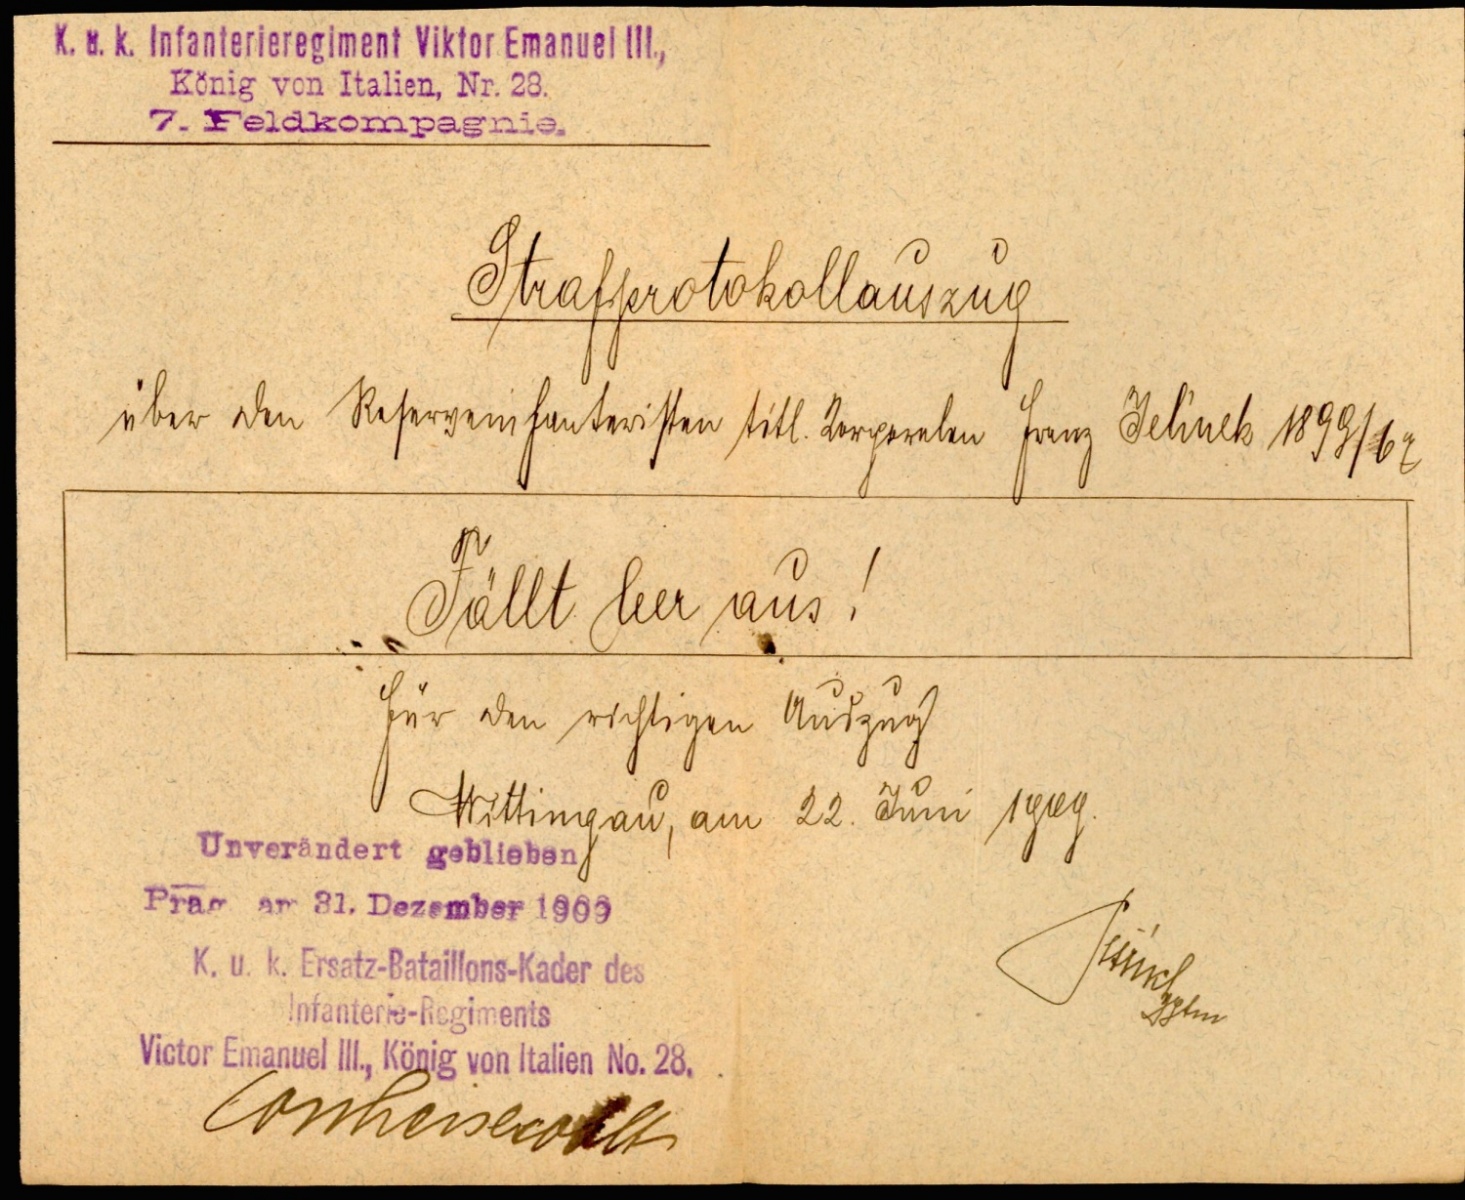 K. u. k. Infanterieregiment Viktor Emanuel III.,
König von Italien, Nr. 28.
7. Feldkompagnie.
Strafprotokollauszug
über den Reserveinfanteristen titl. Korporalen Franz Jelinek 1899/67
Fällt leer aus!
Für den richtigen Auszug
Wittingau, am 22. Juni 1909.
Unverändert geblieben
Prag am 31. Dezember 1909
K. u. k. Ersatz-Bataillons-Kader des
Infanterie-Regiments
Victor Emanuel III., König von Italien No. 28.